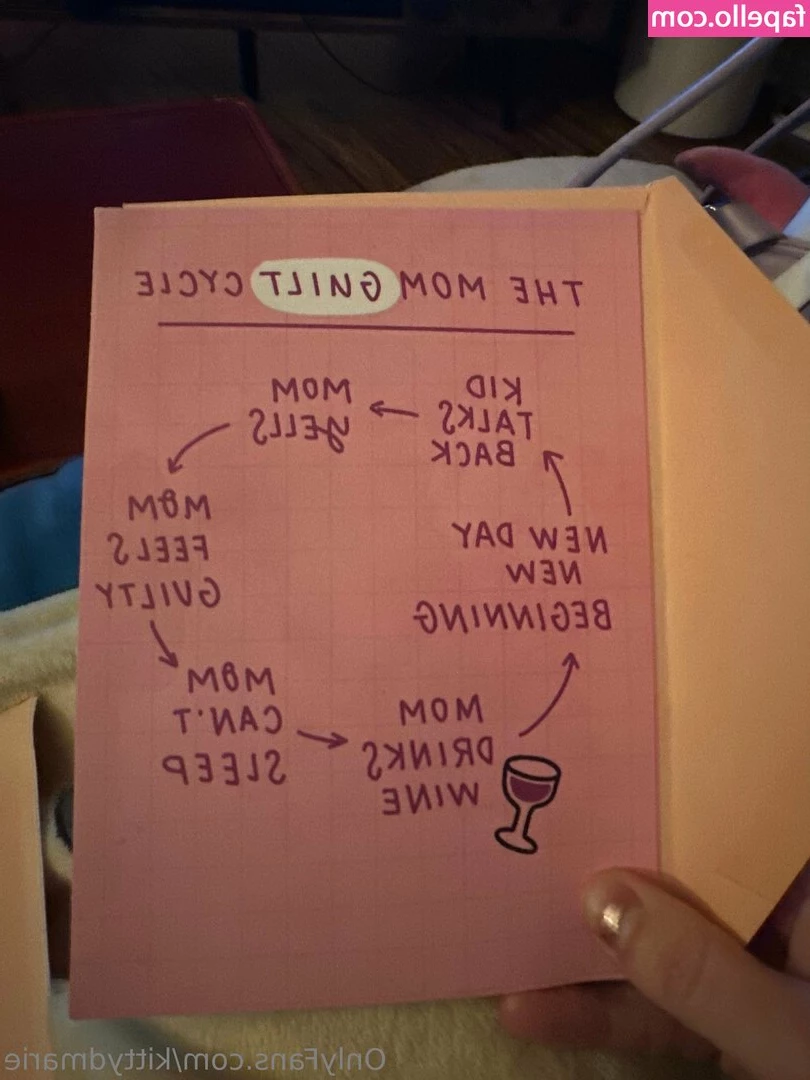 fapello.com
THE MOM GUILT CYCLE
KID
TALKS
BACK
MOM
YELLS
MOM
FEELS
GUILTY
MOM
CAN'T
SLEEP
MOM
DRINKS
WINE
NEW DAY
NEW
BEGINNING
OnlyFans.com/kittydmarie